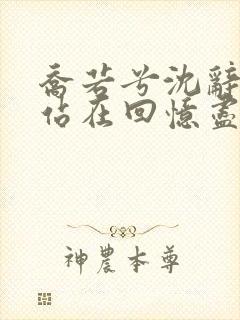 喬若兮沈辭
佔在回憶盡
神農本尊